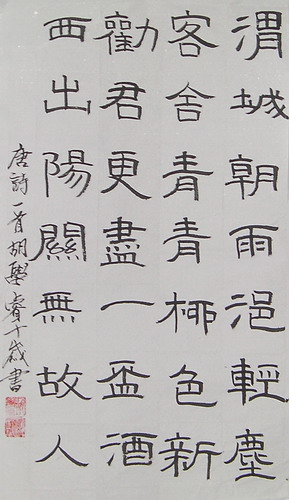 渭城朝雨浥輕塵
客舍青青柳色新
勸君更盡一盃酒
西出陽關無故人
唐詩一首胡學睿十歲書